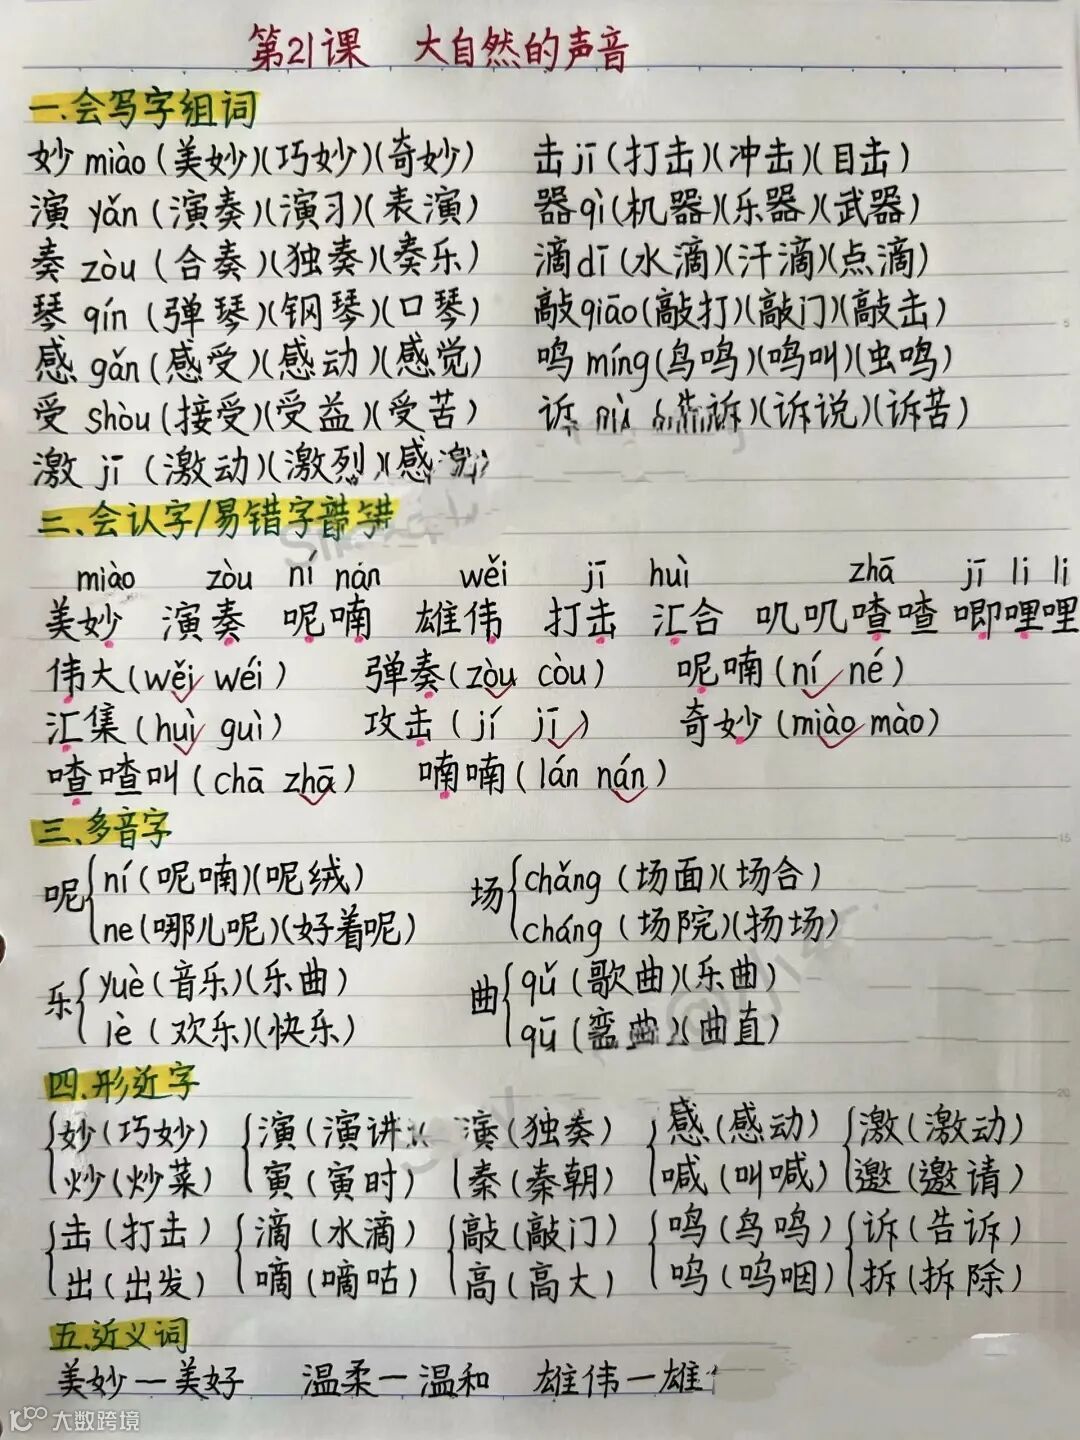 第21课 大自然的声音
一.会写字组词
妙 miào (美妙)(巧妙)(奇妙) 击 jī (打击)(冲击)(目击)
演 yǎn (演奏)(演习)(表演) 器 qì (机器)(乐器)(武器)
奏 zòu (合奏)(独奏)(奏乐) 滴 dī (水滴)(汗滴)(点滴)
琴 qín (弹琴)(钢琴)(口琴) 敲 qiāo (敲打)(敲门)(敲击)
感 gǎn (感受)(感动)(感觉) 鸣 míng (鸟鸣)(鸣叫)(虫鸣)
受 shòu (接受)(受益)(受苦) 诉 (告诉)(诉说)(诉苦)
激 jī (激动)(激烈)(感激)
二.会认字/易错字
miào zòu ní nán wěi jī huì zhā jī li li
美妙 演奏 呢喃 雄伟 打击 汇合 叽叽喳喳 唧哩哩
伟大(wěi wéi) 弹奏(zòu còu) 呢喃(ní né)
汇集(huì guì) 攻击(jí jī) 奇妙(miào mào)
喳喳叫(chā zhā) 喃喃(lán nán)
三.多音字
呢 ní (呢喃)(呢绒) 场 chǎng (场面)(场合)
ne (哪儿呢)(好着呢) cháng (场院)(扬场)
乐 yuè (音乐)(乐曲) 曲 qǔ (歌曲)(乐曲)
lè (欢乐)(快乐) qū (弯曲)(曲直)
四.形近字
妙(巧妙) 演(演讲) (独奏) 感(感动) 激(激动)
炒(炒菜) 寅(寅时) 秦(秦朝) 喊(叫喊) 邀(邀请)
击(打击) 滴(水滴) 敲(敲门) 鸣(鸟鸣) 诉(告诉)
出(出发) 嘀(嘀咕) 高(高大) 呜(呜咽) 拆(拆除)
五.近义词
美妙—美好 温柔—温和 雄伟—雄
大数跨境